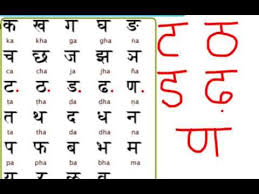 क ख ग घ ङ
ka kha ga gha ṅa
च छ ज झ ञ
cha ja jha ña
ट ठ ड ढ ण
ta tha da dha ṇa
त थ द ध न
ta tha da dha na
प फ ब भ म
pa pha ba bha ma
य र व
ट ठ
ड ढ़
ण